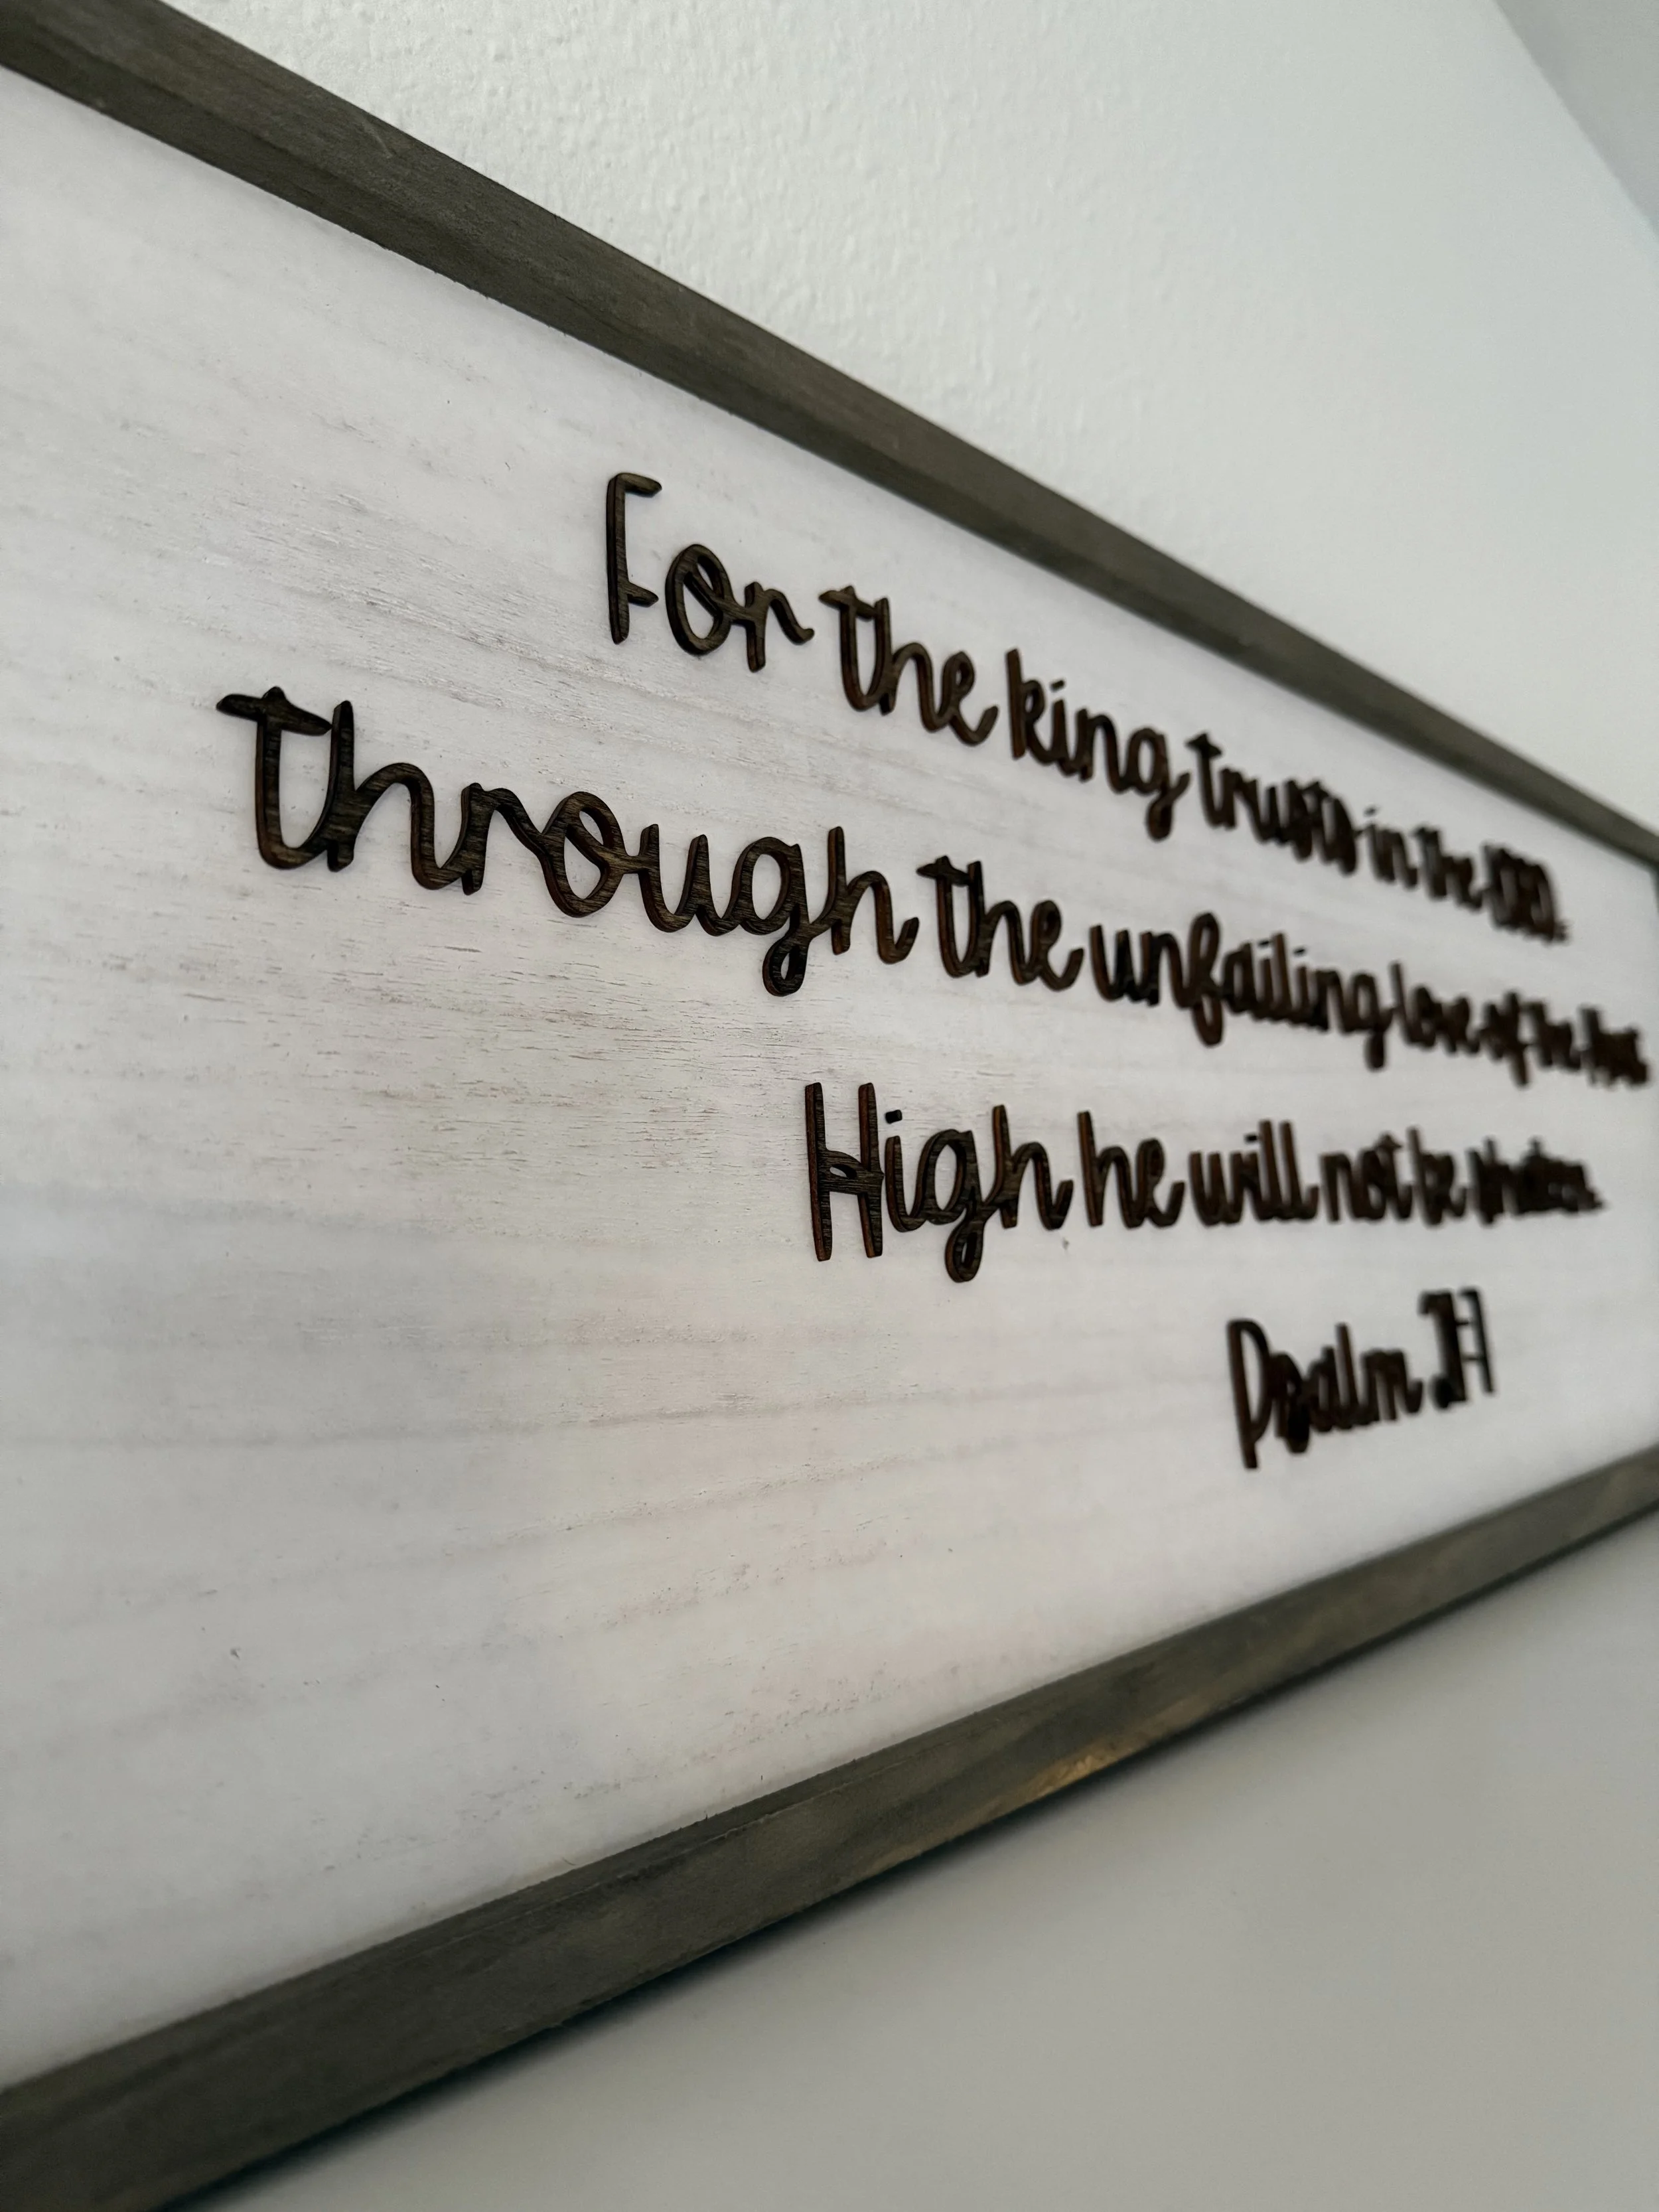 For the king trusts in the LORD,
through the unfailing love of the Most
High he will not be shaken.
Psalm